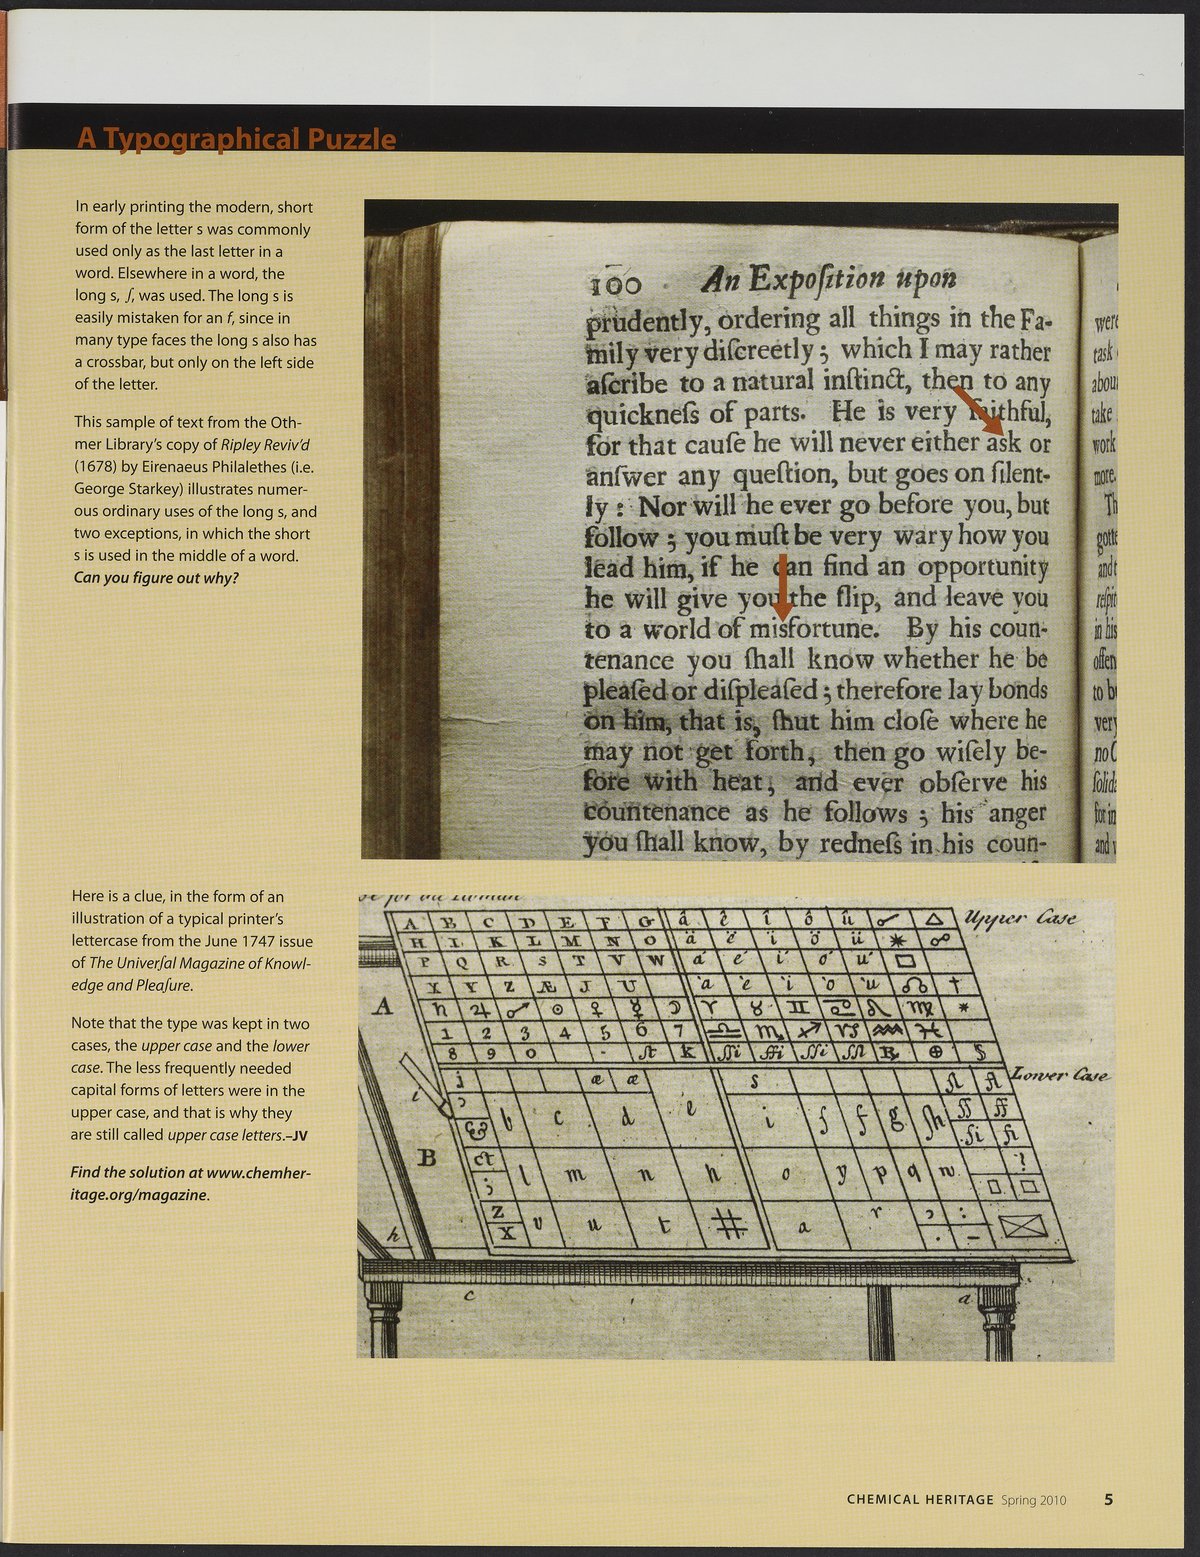 A Typographical Puzzle
In early printing the modern, short
form of the letter s was commonly
used only as the last letter in a
word. Elsewhere in a word, the
long s, ſ, was used. The long s is
easily mistaken for an f, since in
many type faces the long s also has
a crossbar, but only on the left side
of the letter.
This sample of text from the Oth-
mer Library's copy of Ripley Reviv'd
(1678) by Eirenaeus Philalethes (i.e.
George Starkey) illustrates numer-
ous ordinary uses of the long s, and
two exceptions, in which the short
s is used in the middle of a word.
Can you figure out why?
100 An Expoſition upon
prudently, ordering all things in the Fa-
mily very diſcreetly; which I may rather
aſcribe to a natural inſtinct, then to any
quickneſs of parts. He is very faithful,
for that cauſe he will never either ask or
anſwer any queſtion, but goes on ſilent-
ly: Nor will he ever go before you, but
follow; you muſt be very wary how you
lead him, if he can find an opportunity
he will give you the flip, and leave you
to a world of misfortune. By his coun-
tenance you ſhall know whether he be
pleaſed or diſpleaſed; therefore lay bonds
on him, that is, ſhut him cloſe where he
may not get forth, then go wiſely be-
fore with heat, and ever obſerve his
countenance as he follows; his anger
you ſhall know, by redneſs in his coun-
were
task
take
work
more.
Here is a clue, in the form of an
illustration of a typical printer's
lettercase from the June 1747 issue
of The Univerſal Magazine of Knowl-
edge and Pleaſure.
Note that the type was kept in two
cases, the upper case and the lower
case. The less frequently needed
capital forms of letters were in the
upper case, and that is why they
are still called upper case letters.–JV
Find the solution at www.chemher-
itage.org/magazine.
A B C D E F G â ê î ô û ☌ △ Upper Case
H I K L M N O ä ë ï ö ü * ☍
P Q R S T V W á é í ó ú □
X Y Z Æ J U à è ì ò ù ☊ †
A
♄ ♃ ♂ ☉ ♀ ☿ ☽ ♈ ♉ ♊ ♋ ♌ ♍ *
1 2 3 4 5 6 7 ♎ ♏ ♐ ♑ ♒ ♓
8 9 0 - ſt k ſſi ffi ℞ ⊕ §
j æ œ s Lower Case
i b c d e i ſ f g ſh ſſ ff
& ſi fi
B
ct l m n h o y p q w ! ?
;
z v u t # a r , : . -
x
h
c a
CHEMICAL HERITAGE Spring 2010 5